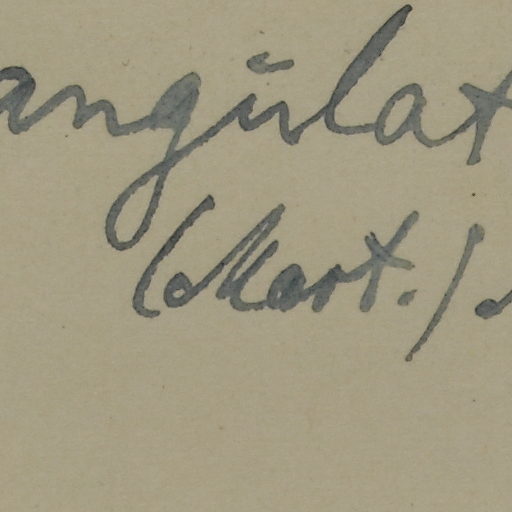 angŭlat
(Mart.)